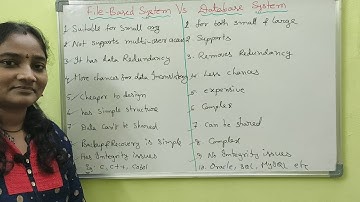 File-Based System Vs Database System
1. Suitable for Small org
1. for both small & large
2. Not supports multi-user access
2. Supports
3. It has data Redundancy
3. Removes Redundancy
4. More chances for data Inconsistency
4. Less chances
5. Cheaper to design
5. expensive
6. has Simple structure
6. Complex
7. Data Can't be shared
7. can be shared
Backup & Recovery is Simple
8. Complex
Has Integrity issues
9. No Integrity issues
Eg: C, C++, Cobol
10. Oracle, SQL, MySQL etc